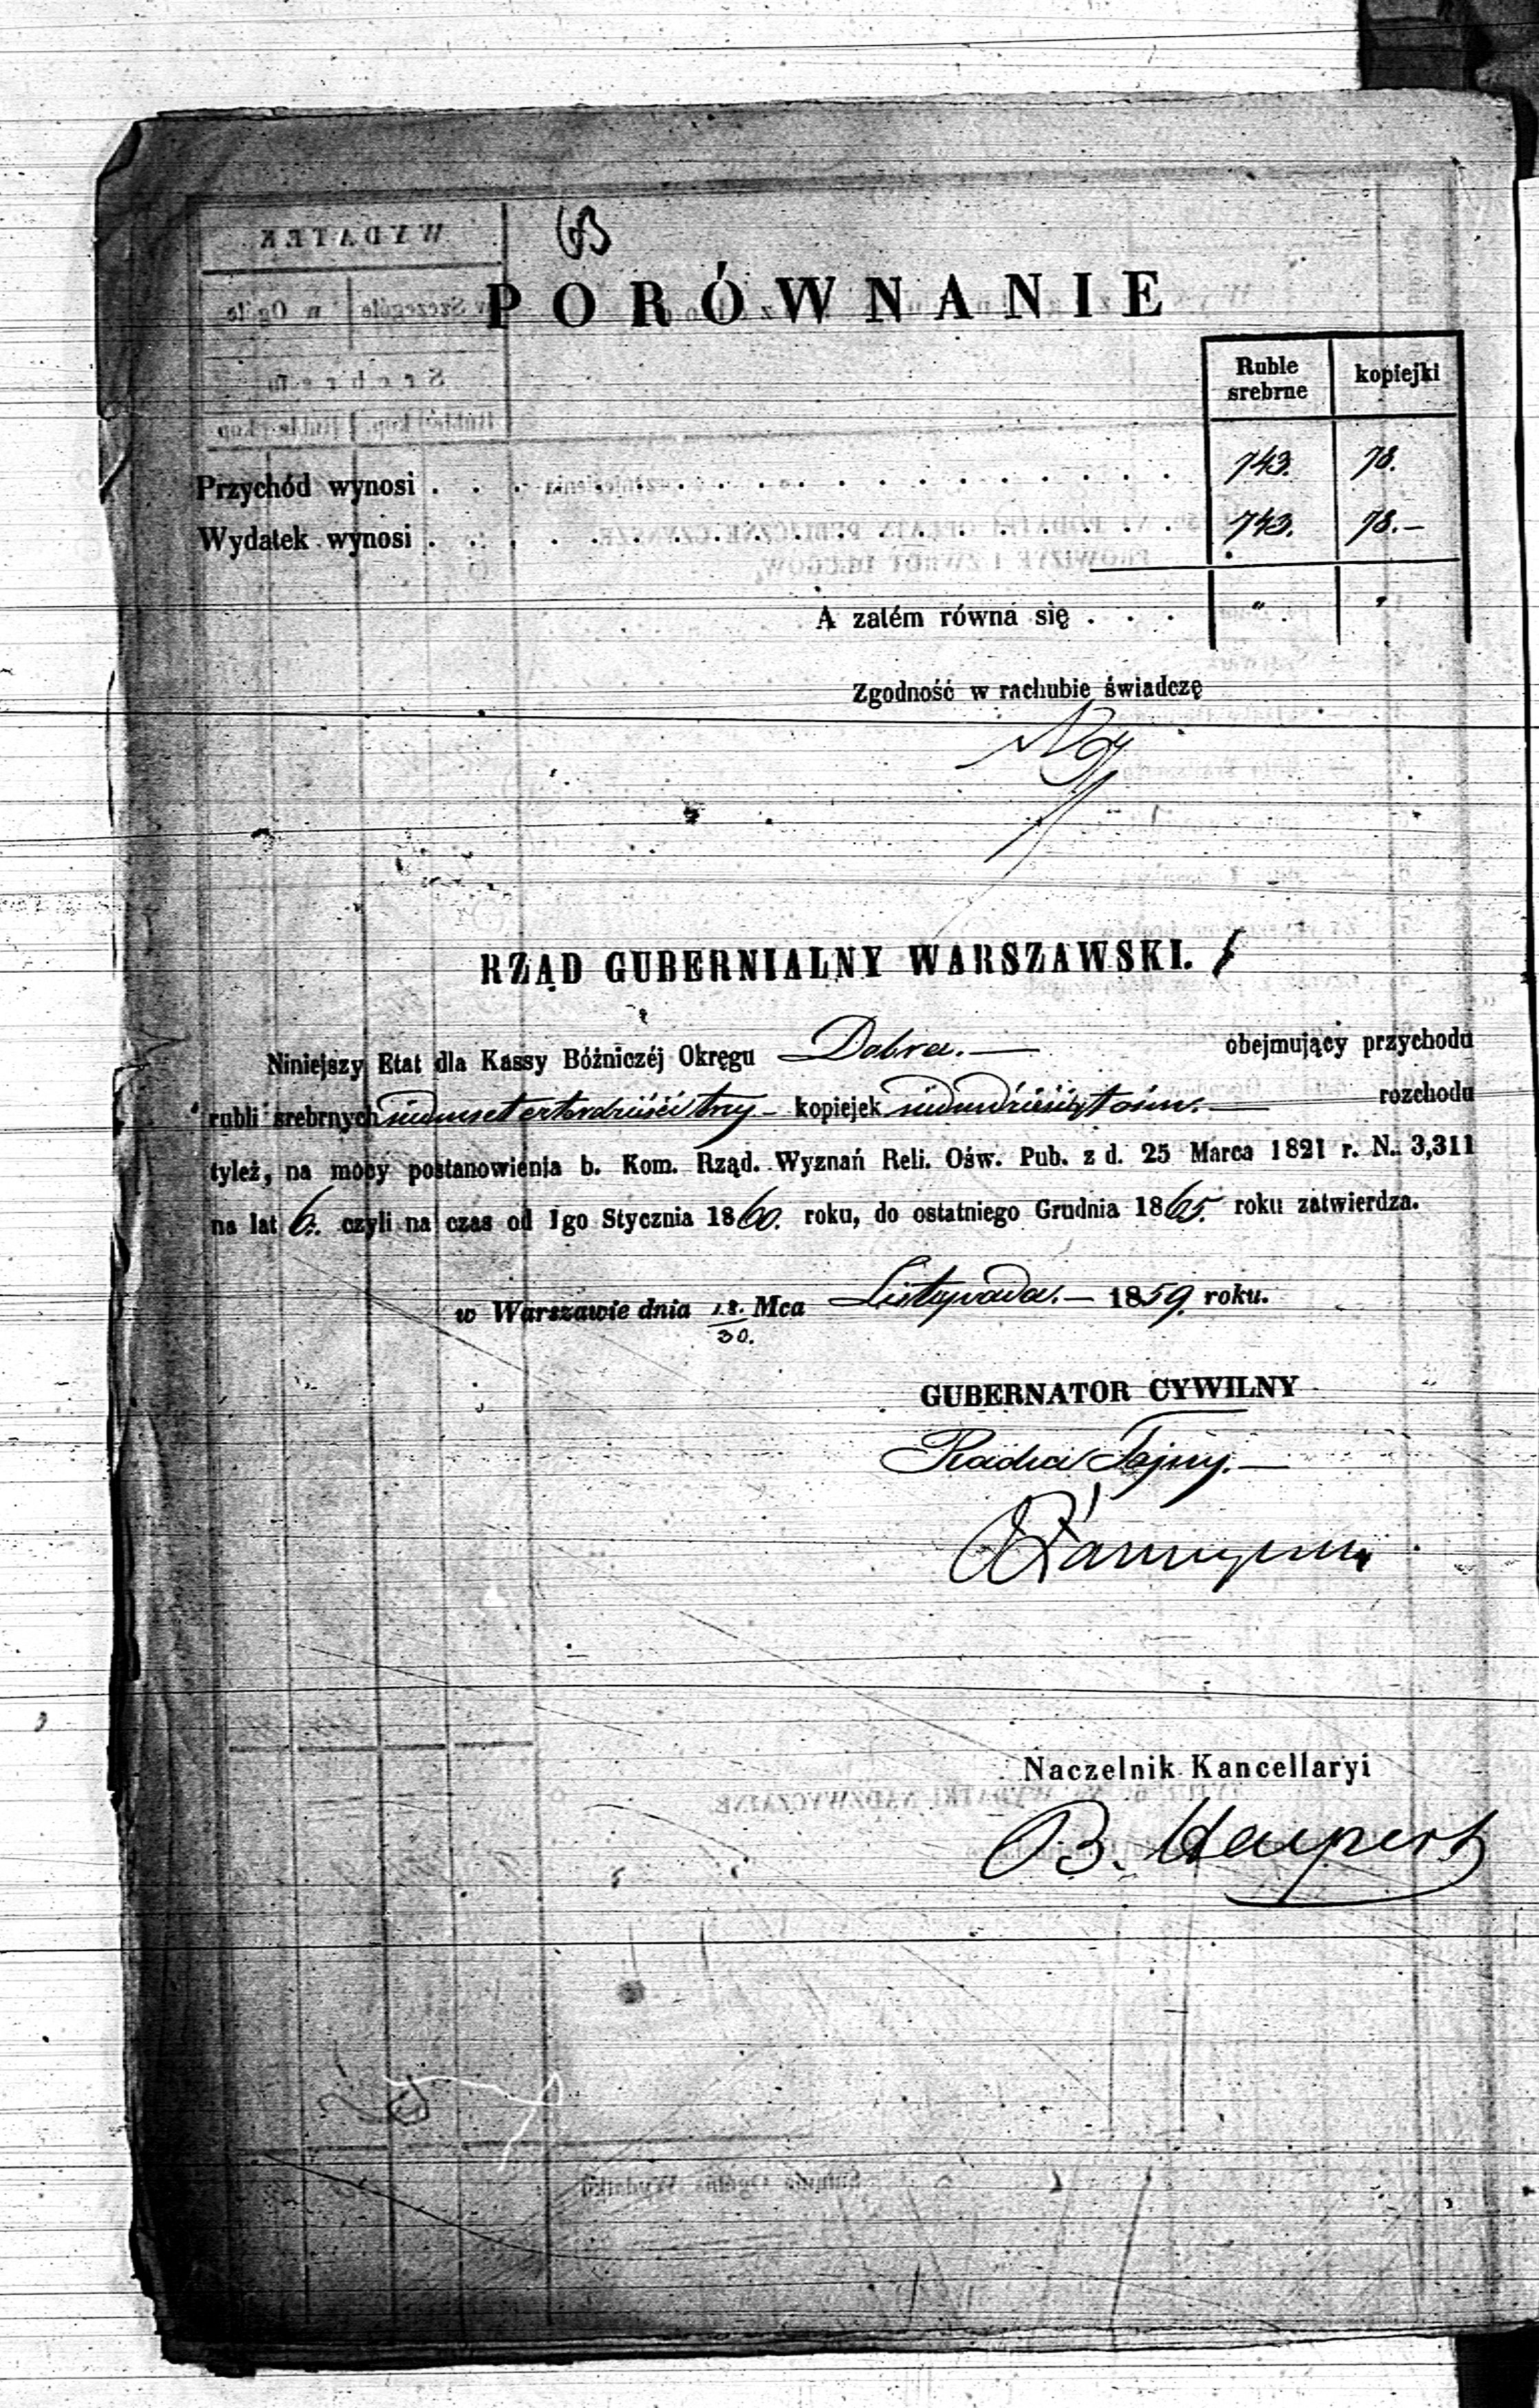 PORÓWNANIE
Ruble srebrne kopiejki
Przychód wynosi . . . . . . . . . . . . . . . . . . 743. 78.
Wydatek wynosi . . . . . . . . . . . . . . . . . . 743. 78.—
A zatém równa się . . . " "
Zgodność w rachubie świadczę
RZĄD GUBERNIALNY WARSZAWSKI.
Niniejszy Etat dla Kassy Bóźniczéj Okręgu Dobra.— obejmujący przychodu
rubli srebrnych siedmset czterdzieści trzy – kopiejek siedmdziesiąt ośm.— rozchodu
tyleż, na mocy postanowienia b. Kom. Rząd. Wyznań Reli. Ośw. Pub. z d. 25 Marca 1821 r. N. 3,311
na lat 6. czyli na czas od 1go Stycznia 1860. roku, do ostatniego Grudnia 1865. roku zatwierdza.
w Warszawie dnia 18./30. Mca Listopada.— 1859. roku.
GUBERNATOR CYWILNY
Radca Tajny.—
Naczelnik Kancellaryi
B. Halpert